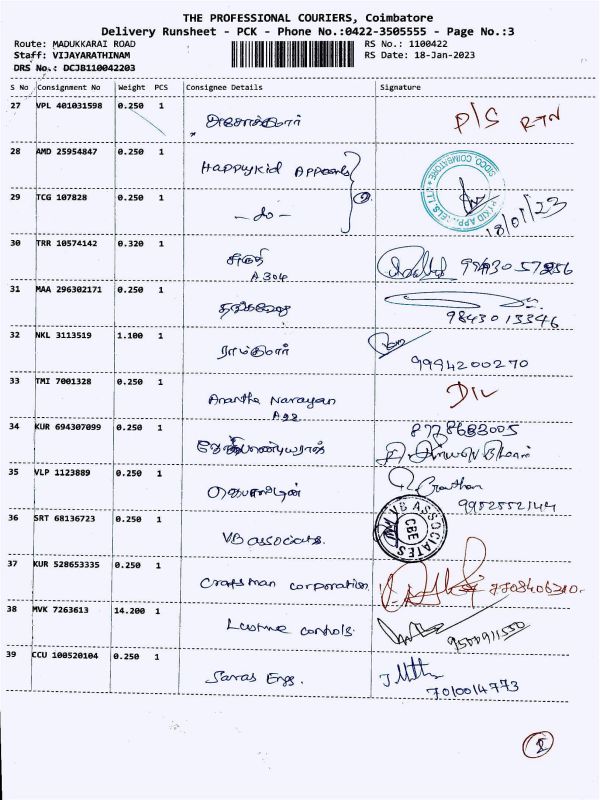 THE PROFESSIONAL COURIERS, Coimbatore
Delivery Runsheet - PCK - Phone No.:0422-3505555 - Page No.:3
Route: MADUKKARAI ROAD RS No.: 1100422
Staff: VIJAYARATHINAM RS Date: 18-Jan-2023
DRS No.: DCJB110042203
S No Consignment No Weight PCS Consignee Details Signature
27 VPL 401031598 0.250 1 அசோக்குமார் P/S RTN
28 AMD 25954847 0.250 1 Happykid Apparels
SIDCO COIMBATORE
29 TCG 107828 0.250 1 - do - 18/01/23
30 TRR 10574142 0.320 1
A304
31 MAA 296302171 0.250 1 தங்கவேலு
9843013346
32 NKL 3113519 1.100 1 ராம்குமார்
9994200270
33 TMI 7001328 0.250 1 Anantha Narayan D/L
A22
34 KUR 694307099 0.250 1 8778683005
35 VLP 1123889 0.250 1
9952552144
36 SRT 68136723 0.250 1 VB associats. VB ASSOCIATES CBE
37 KUR 528653335 0.250 1 Craftsman corporation
38 MVK 7263613 14.200 1 controls.
39 CCU 100520104 0.250 1 Saras Engg.
7010014773